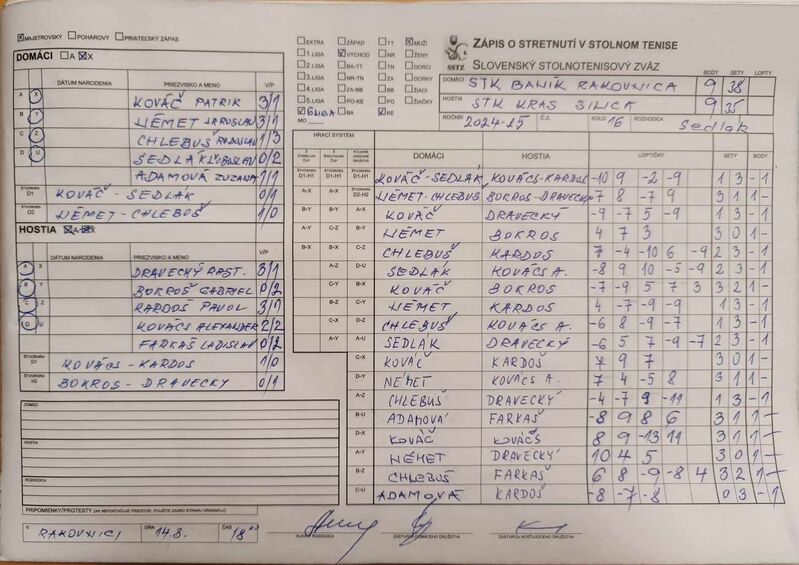 MAJSTROVSKÝ POHÁROVÝ PRIATEĽSKÝ ZÁPAS
DOMÁCI A X
DÁTUM NARODENIA PRIEZVISKO A MENO V/P
A X KOVÁČ PATRIK 3/1
B Y NÉMET JAROSLAV 3/1
C Z CHLEBUŠ RADOSLAV 1/3
D U SEDLÁK ĽUBOSLAV 0/2
ADAMOVÁ ZUZANA 1/1
ŠTVORHRA D1 KOVÁČ - SEDLÁK 0/1
ŠTVORHRA D2 NÉMET - CHLEBUŠ 1/0
HOSTIA A X
DÁTUM NARODENIA PRIEZVISKO A MENO V/P
A X DRAVECKÝ RAST. 3/1
B Y BOKROŠ GABRIEL 0/2
C Z KARDOŠ PAVOL 3/1
D U KOVÁCS ALEXANDER 2/2
FARKAŠ LADISLAV 0/2
ŠTVORHRA KOVÁCS - KARDOŠ 1/0
ŠTVORHRA H2 BOKROS - DRAVECKY 0/1
DOMÁCI
HOSTIA
ROZHODCA
PRIPOMIENKY/PROTESTY (AK NEPOSTAČUJE PRIESTOR, POUŽITE ZADNÚ STRANU ORIGINÁLU)
V RAKOVNICI DŇA 14.3. ČAS 18
EXTRA ZÁPAD TT MUŽI
1.LIGA VÝCHOD NR ŽENY
2.LIGA BA-TT TN DORCI
3.LIGA NR-TN ZA DORKY
4.LIGA ZA-BB BB ŽIACI
5.LIGA PO-KE PO ŽIAČKY
6 LIGA BA KE
MO
SSTZ
ZÁPIS O STRETNUTÍ V STOLNOM TENISE
SLOVENSKÝ STOLNOTENISOVÝ ZVÄZ
BODY SETY LOPTY
DOMÁCI STK BANÍK RAKOVNICA 9 38
HOSTIA STK KRAS SILICA 9 35
ROČNÍK 2024-25 Č.Z. KOLO 16 ROZHODCA Sedlák
HRACÍ SYSTÉM
DOMÁCI HOSTIA LOPTIČKY SETY BODY
ŠTVORHRA D1-H1 ŠTVORHRA D1-H1 ŠTVORHRA D1-H1 KOVÁČ-SEDLÁK KOVÁCS-KARDOS -10 9 -2 -9 1 3 - 1
A-X A-X ŠTVORHRA D2-H2 NÉMET-CHLEBUŠ BOKROS-DRAVECKY 7 8 -7 9 3 1 1 -
B-Y B-Y A-X KOVÁČ DRAVECKÝ -9 -7 5 -9 1 3 - 1
A-Y C-Z B-Y NÉMET BOKROS 4 7 3 3 0 1 -
B-X B-X C-Z CHLEBUŠ KARDOŠ 7 -4 -10 6 -9 2 3 - 1
A-Z D-U SEDLÁK KOVÁCS A. -8 9 10 -5 -9 2 3 - 1
C-Y B-X KOVÁČ BOKROS -7 -9 5 7 3 3 2 1 -
B-Z C-Y NÉMET KARDOŠ 4 -7 -9 -9 1 3 - 1
C-X D-Z CHLEBUŠ KOVÁCS A. -6 8 -9 -7 1 3 - 1
A-Y A-U SEDLÁK DRAVECKÝ -6 5 7 -9 -7 2 3 - 1
C-X KOVÁČ KARDOŠ 7 9 7 3 0 1 -
D-Y NÉMET KOVÁCS A. 7 4 -5 8 3 1 1 -
A-Z CHLEBUŠ DRAVECKÝ -4 -7 9 -11 1 3 - 1
B-U ADAMOVÁ FARKAŠ -8 9 8 6 3 1 1 -
D-X KOVÁČ KOVÁCS 8 9 -13 11 3 1 1 -
A-Y NÉMET DRAVECKÝ 10 4 5 3 0 1 -
B-Z CHLEBUŠ FARKAŠ 6 8 -9 -8 4 3 2 1 -
C-U ADAMOVÁ KARDOŠ -8 -7 -8 0 3 - 1
HLAVNÝ ROZHODCA ZÁSTUPCA DOMÁCEHO DRUŽSTVA ZÁSTUPCA HOSŤUJÚCEHO DRUŽSTVA